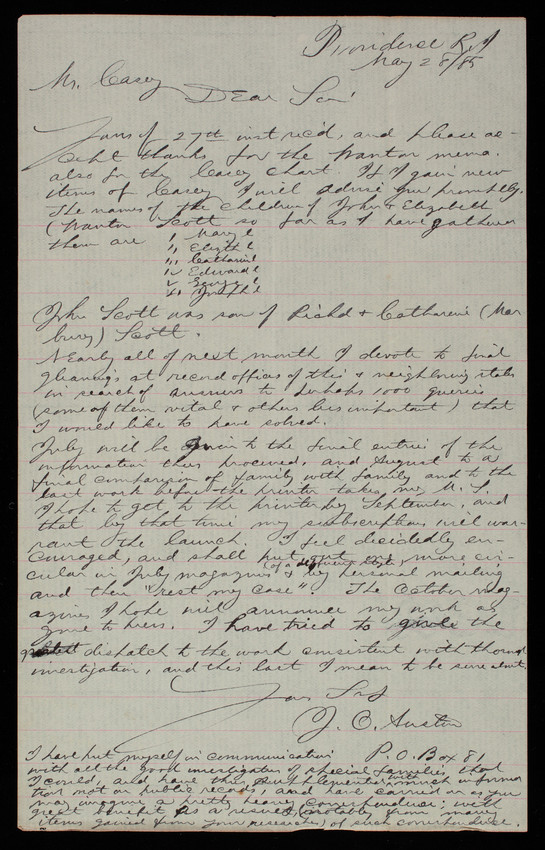 Providence R.I
May 28/85
Mr. Casey
Dear Sir!
Yours of 27th inst rec'd, and please ac-
cept thanks for the Wanton mema.
also for the Casey chart. If I gain new
items of Casey I will advise you promptly.
The names of the children of John & Elizabeth
(Wanton Scott so far as I have gathered
them are
i, Mary
ii, Elizth
iii, Catharine
iv Edward
v George
vi, Joseph
John Scott was son of Richd & Catharine (Mar
bury) Scott.
Nearly all of next month I devote to final
gleanings at record offices of this & neighboring states
in search of answers to perhaps 1000 queries
(some of them vital & others less important) that
I would like to have solved.
July will be given to the final entries of the
information thus procured, and August to a
final comparison of family with family and to the
last work before the printer takes my M.S.
I hope to get to the printer by September, and
that by that time my subscriptions will war-
rant the launch. I feel decidedly en-
couraged, and shall put out one more cir-
cular in July magazines (of a different style) & by personal mailing
and then "rest my case". The October mag-
azines I hope will announce my work as
gone to press. I have tried to give the
greatest dispatch to the work consistent with thorough
investigation, and this last I mean to be sure about.
Yours Truly
J. O. Austin
P.O. Box 81
I have put myself in communication
with all the good investigators of special families that
I could, and have thus supplemented much informa
tion not on public records, and have carried on as you
may imagine a pretty heavy correspondence; with
great benefit as a result (notably from many
items gained from your researches) of such correspondence.